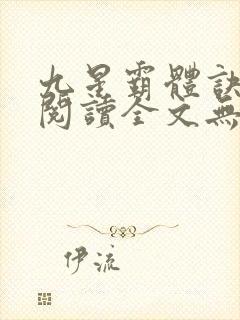 九星霸體訣
閱讀全文無
伊流